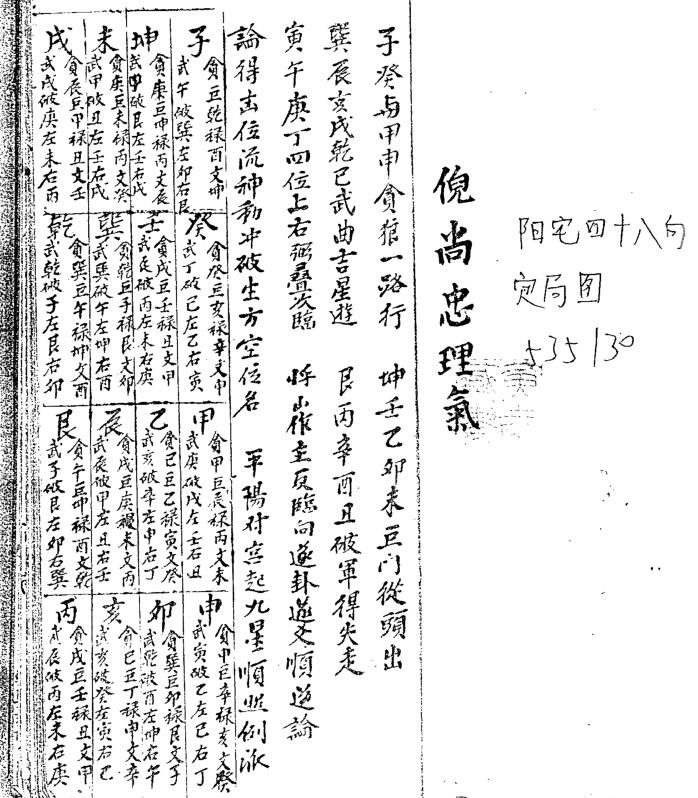 阳宅四十八向
定局图
535130
倪尚忠理氣
子癸与甲申貪狼一路行 坤壬乙卯未巨门從頭出
巽辰亥戌乾巳武曲吉星遊 艮丙辛酉丑破軍得失走
寅午庚丁四位上右弼疊次臨 作主反臨向遂卦遊文順逆論
論得击位流神動冲破生方空位名 平陽对宫起九星順照例派
子
貪巨乾禄酉文坤
武午破巽左卯右艮
坤
貪庚巨坤禄丙文辰
武甲破艮左壬右戌
未
貪庚巨未禄丙文癸
武甲破丑左壬右戌
戌
貪辰巨甲禄丑文壬
武戌破庚左未右丙
癸
貪癸巨亥禄辛文申
武丁破巳左乙右寅
壬
貪戌巨壬禄丑文甲
武辰破丙左未右庚
巽
貪乾巨子禄艮文卯
武巽破午左坤右酉
乾
貪巽巨午禄坤文酉
武乾破子左艮右卯
甲
貪甲巨辰禄丙文未
武庚破戌左壬右丑
乙
貪巳巨乙禄寅文癸
武亥破辛左申右丁
辰
貪戌巨庚禄未文丙
武辰破甲左丑右壬
艮
貪午巨坤禄酉文乾
武子破艮左卯右巽
申
貪申巨辛禄亥文癸
武寅破乙左巳右丁
卯
貪巽巨卯禄艮文子
武乾破酉左坤右午
亥
貪巳巨丁禄申文辛
武亥破癸左寅右巳
丙
貪戌巨壬禄丑文甲
武辰破丙左未右庚